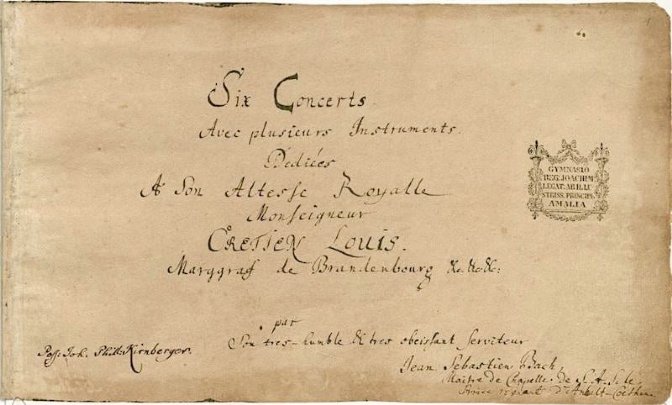 Six Concerts
Avec plusieurs Instruments.
Dediées
A Son Altesse Royalle
Monseigneur
CRETIEN LOUIS.
Marggraf de Brandenbourg &c.&c.&c:
par
Son tres-humble & tres obeissant serviteur
Jean Sebastien Bach,
Maitre de Chapelle de S. A. S. le
Prince regnant d'Anhalt-Coethen.
Poss: Joh. Phil: Kirnberger.
GYMNASIO
REG. JOACHIM
LEGAT. AB ILLU
STRISS. PRINCIPE
AMALIA